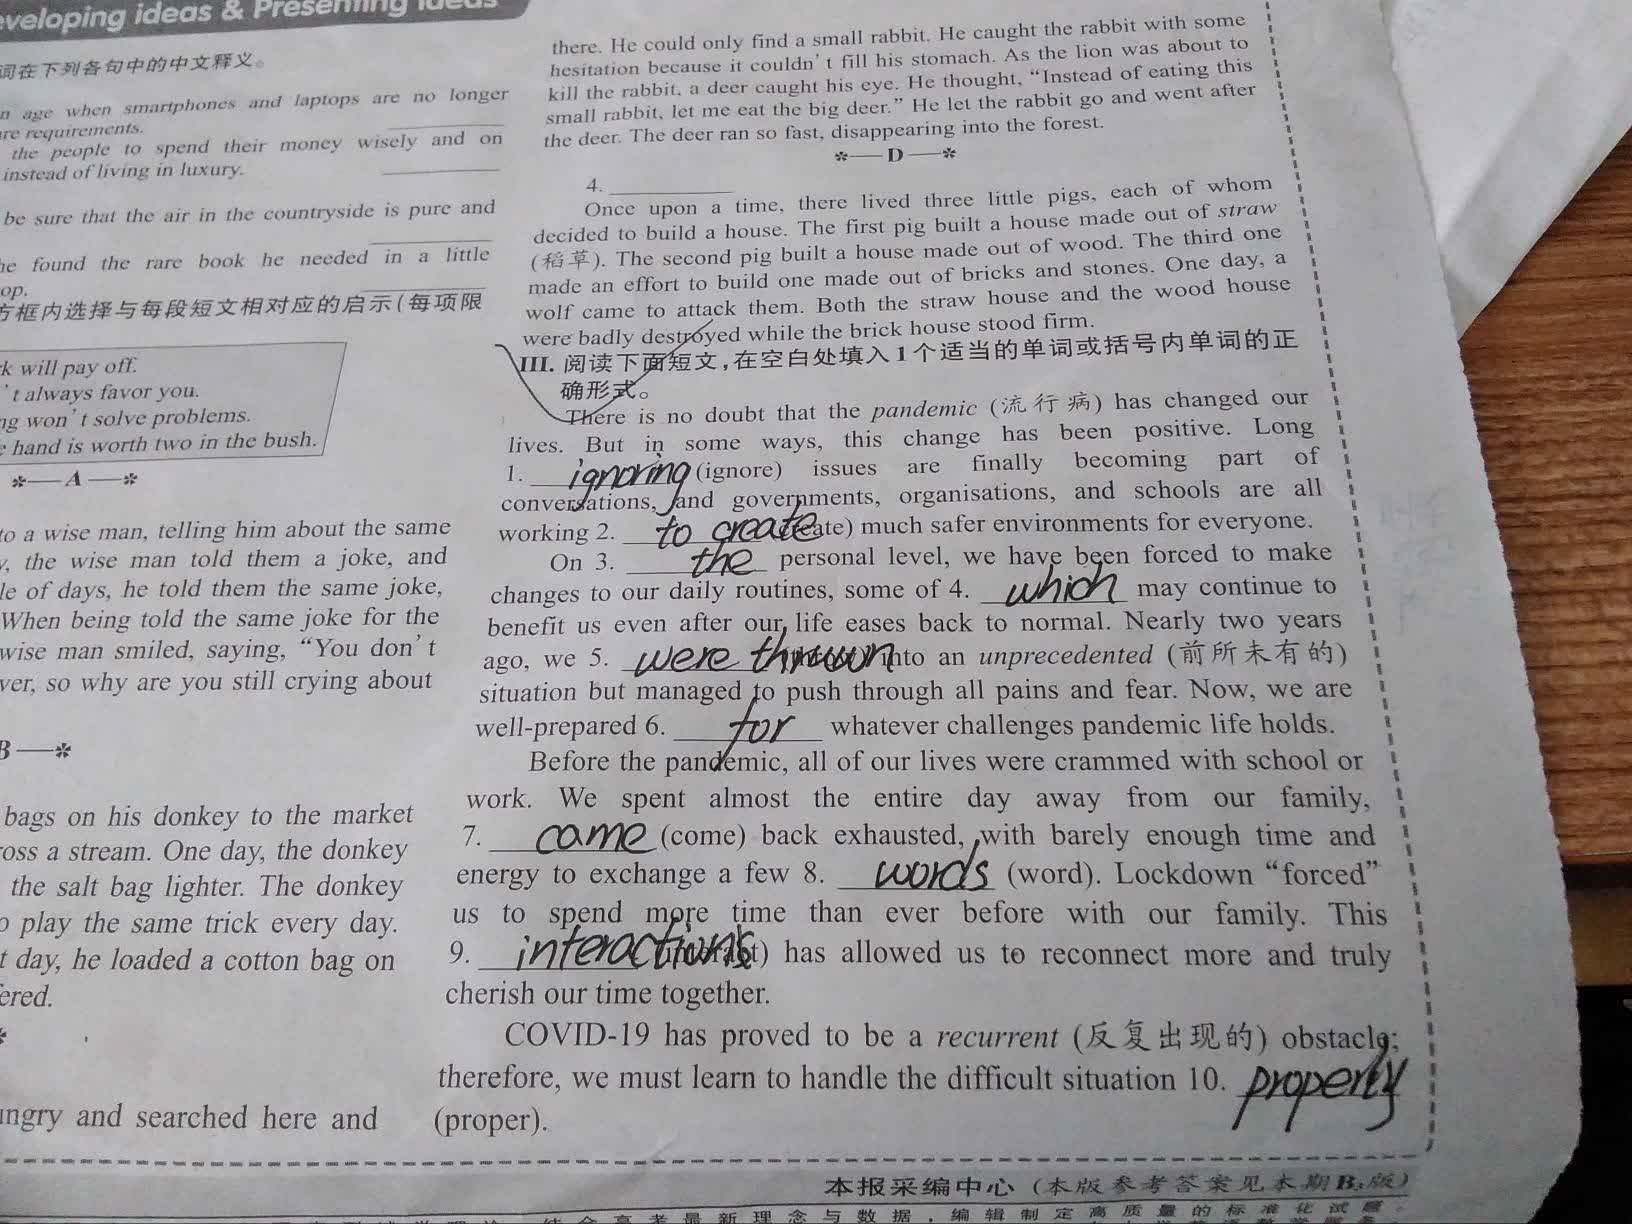 eveloping ideas & Presenting ideas
词在下列各句中的中文释义。
n age when smartphones and laptops are no longer
re requirements.
the people to spend their money wisely and on
instead of living in luxury.
be sure that the air in the countryside is pure and
he found the rare book he needed in a little
op.
方框内选择与每段短文相对应的启示(每项限
k will pay off.
't always favor you.
ng won't solve problems.
e hand is worth two in the bush.
*—A—*
to a wise man, telling him about the same
y, the wise man told them a joke, and
le of days, he told them the same joke,
When being told the same joke for the
wise man smiled, saying, "You don't
ver, so why are you still crying about
B—*
bags on his donkey to the market
ross a stream. One day, the donkey
the salt bag lighter. The donkey
o play the same trick every day.
t day, he loaded a cotton bag on
fered.
*
ungry and searched here and
there. He could only find a small rabbit. He caught the rabbit with some
hesitation because it couldn't fill his stomach. As the lion was about to
kill the rabbit, a deer caught his eye. He thought, "Instead of eating this
small rabbit, let me eat the big deer." He let the rabbit go and went after
the deer. The deer ran so fast, disappearing into the forest.
*—D—*
4. ________
Once upon a time, there lived three little pigs, each of whom
decided to build a house. The first pig built a house made out of straw
(稻草). The second pig built a house made out of wood. The third one
made an effort to build one made out of bricks and stones. One day, a
wolf came to attack them. Both the straw house and the wood house
were badly destroyed while the brick house stood firm.
III. 阅读下面短文,在空白处填入1个适当的单词或括号内单词的正
确形式。
There is no doubt that the pandemic (流行病) has changed our
lives. But in some ways, this change has been positive. Long
1. ignoring (ignore) issues are finally becoming part of
conversations, and governments, organisations, and schools are all
working 2. to create (create) much safer environments for everyone.
On 3. the personal level, we have been forced to make
changes to our daily routines, some of 4. which may continue to
benefit us even after our life eases back to normal. Nearly two years
ago, we 5. were thrown into an unprecedented (前所未有的)
situation but managed to push through all pains and fear. Now, we are
well-prepared 6. for whatever challenges pandemic life holds.
Before the pandemic, all of our lives were crammed with school or
work. We spent almost the entire day away from our family,
7. came (come) back exhausted, with barely enough time and
energy to exchange a few 8. words (word). Lockdown "forced"
us to spend more time than ever before with our family. This
9. interactions (interact) has allowed us to reconnect more and truly
cherish our time together.
COVID-19 has proved to be a recurrent (反复出现的) obstacle;
therefore, we must learn to handle the difficult situation 10. properly
(proper).
本报采编中心(本版参考答案见本期B3版)